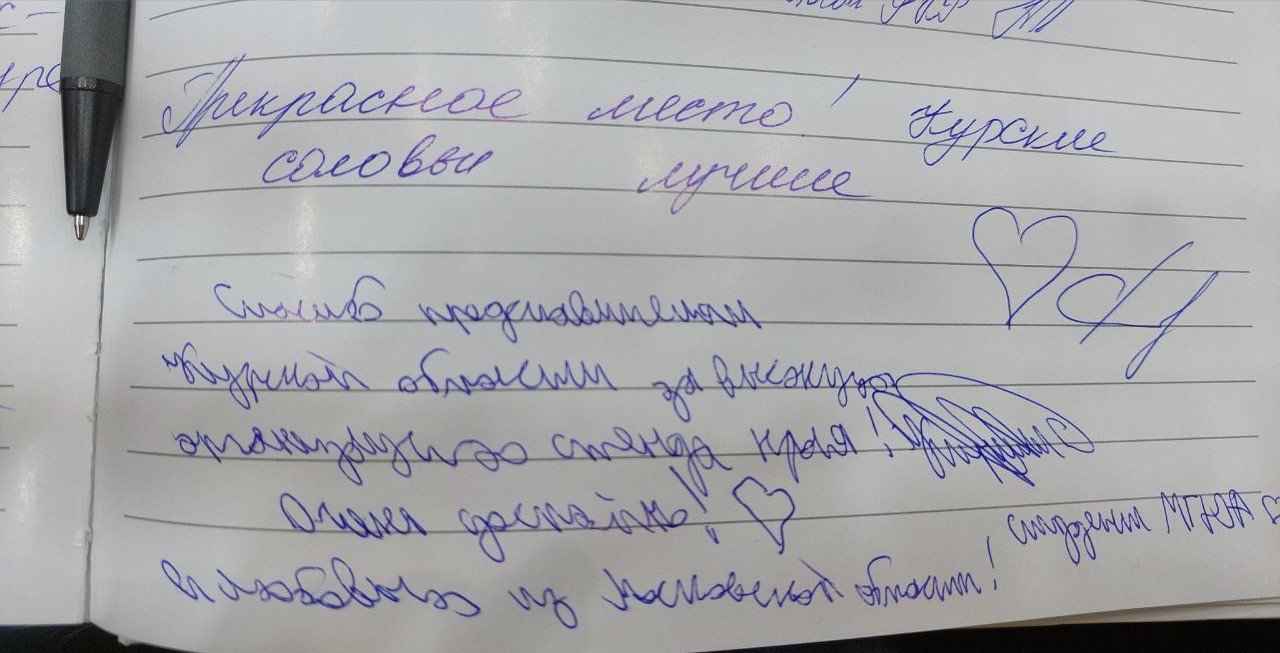 Прекрасное место! Курские
соловьи лучшие
Спасибо представителям
Курской области за высокую
организацию стенда края!
Очень достойно!
С любовью из Московской области!
студент МГЮА